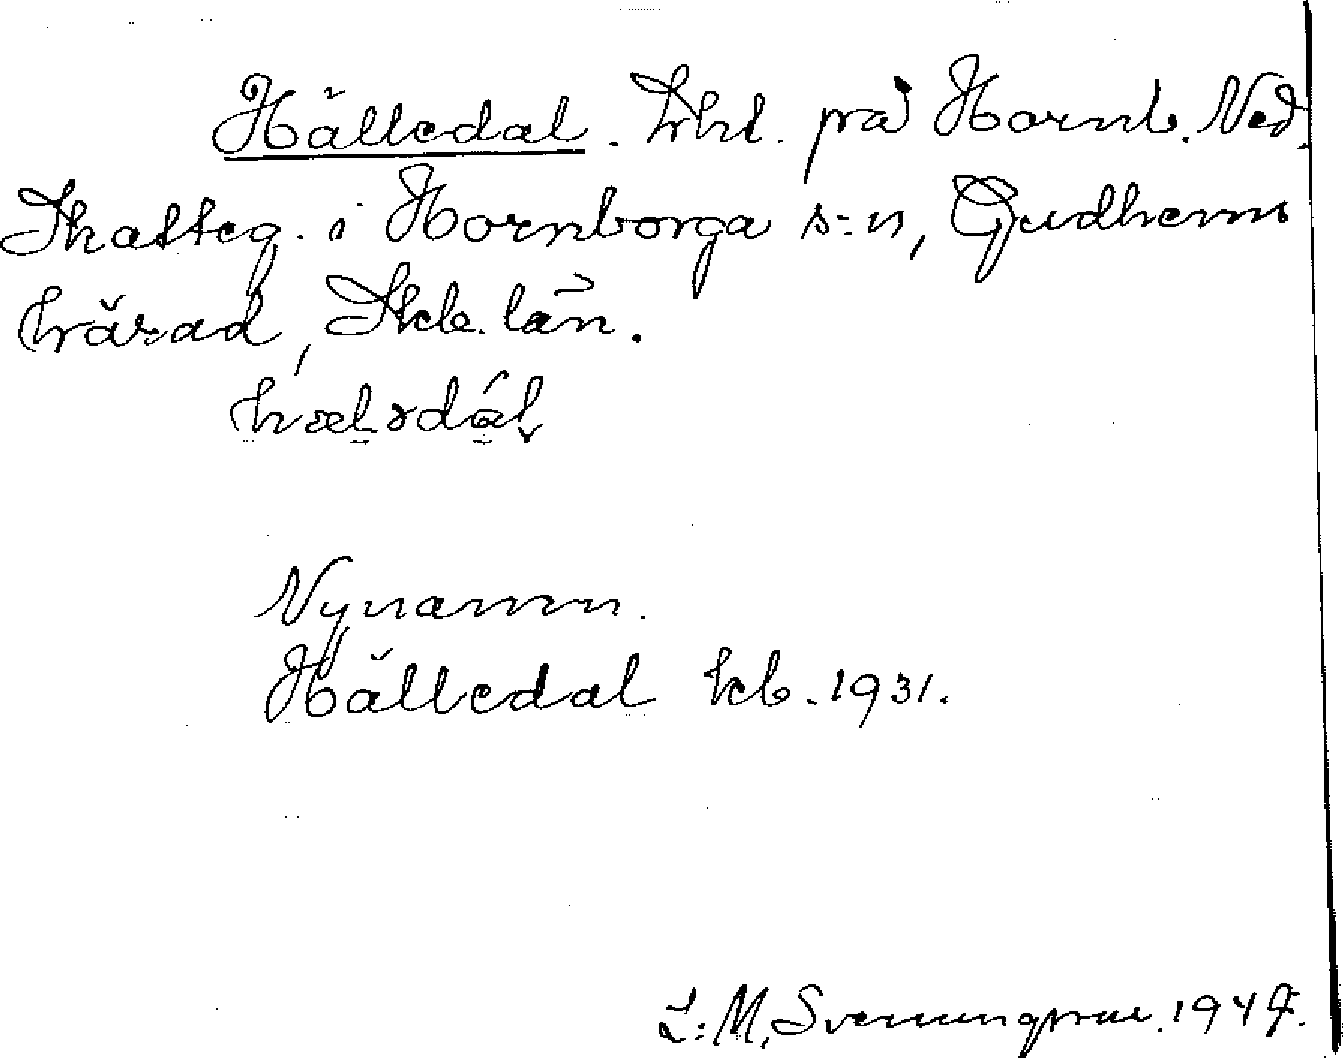 Hälledal. Lht. på Hornb. Ned.
Skatteg. i Hornborga s:n, Gudhems
härad, Skb. län.
Nynamn.
Hälledal kb. 1931.
L: M. Svenungsson. 194